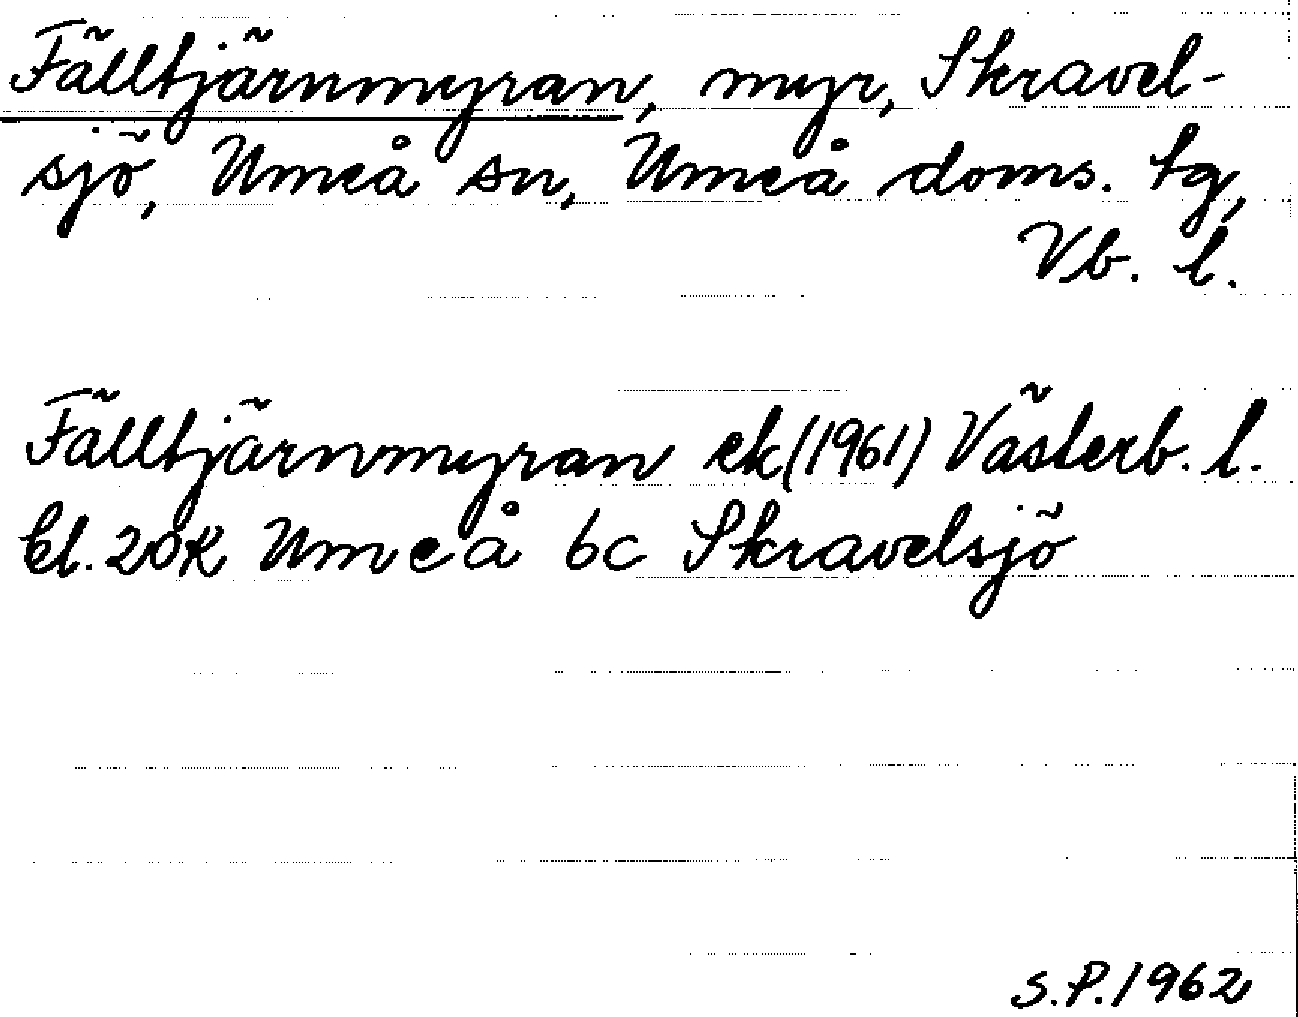 Fälltjärnmyran, myr, Skravel-
sjö, Umeå sn, Umeå doms. tg,
Vb. l.
Fälltjärnmyran ek (1961) Västerb. l.
bl. 20K Umeå 6c Skravelsjö
S.P. 1962